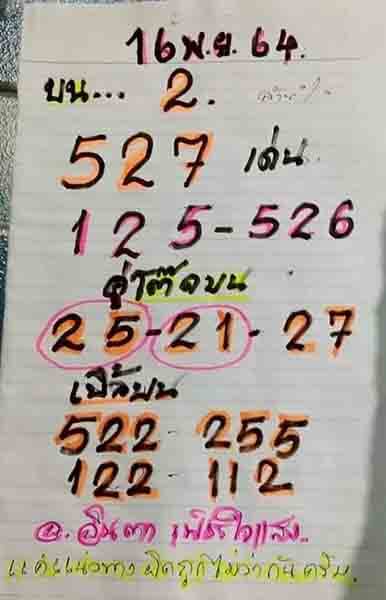 16 พ.ย. 64.
บน... 2.
527 เด่น.
125-526
คู่โต๊ดบน
25-21-27
เบิ้ลบน
522-255
122-112
อ. อินตา เพ็ชรใจแสง..
แค่แนวทาง ผิดถูกไม่ว่ากันครับ.